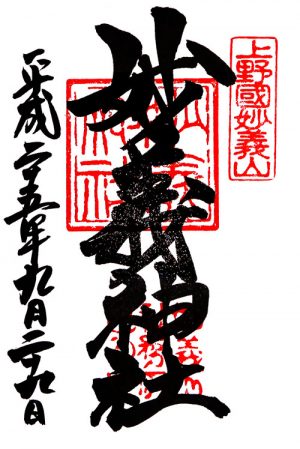 上野國妙義山
妙義神社
平成二十五年九月二十九日